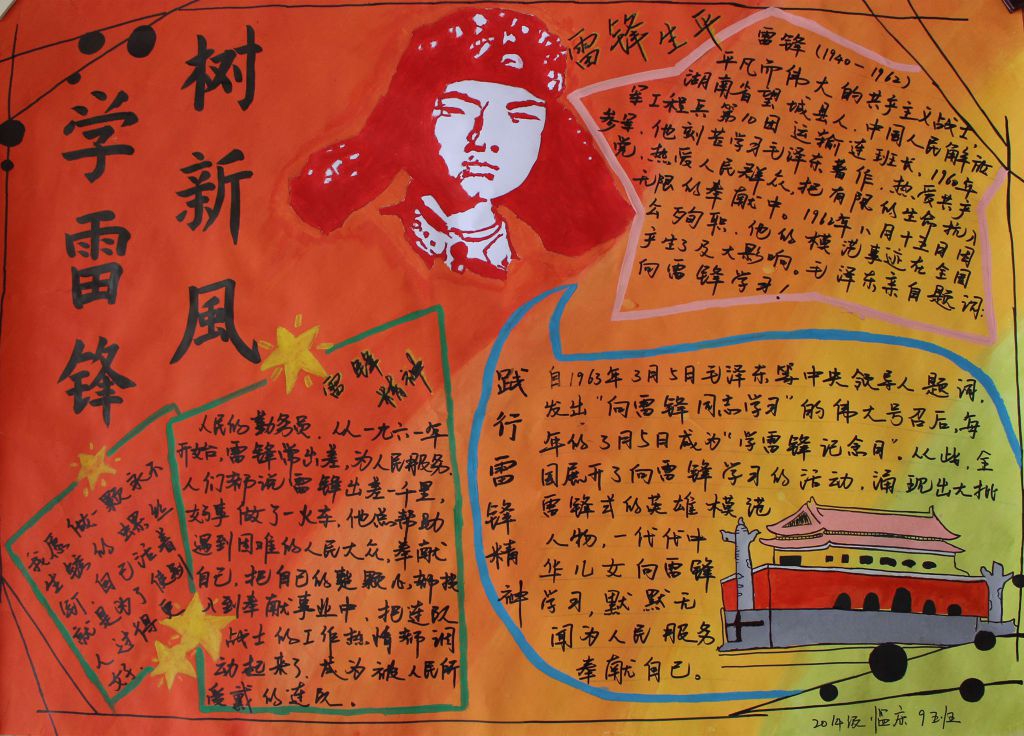 学雷锋
树新風
雷锋生平
雷锋(1940—1962)
平凡而伟大的共产主义战士
湖南省望城县人,中国人民解放
军工程兵第10团运输连班长、1960年
参军,他刻苦学习毛泽东著作,热爱共产
党,热爱人民群众,把有限的生命投入
无限的奉献中。1962年八月十五日因
公殉职,他的模范事迹在全国
产生了及大影响。毛泽东亲自题词:
向雷锋学习!
雷锋
精神
人民的勤务员,从一九六一年
开始,雷锋常出差,为人民服务,
人们都说雷锋出差一千里,
好事做了一火车,他总帮助
遇到困难的人民大众,奉献
自己,把自己的整颗心都投
入到奉献事业中,把连队
战士的工作热情都调
动起来了,成为被人民所
爱戴的连队。
我愿做一颗永不
生锈的螺丝
钉,自己活着
就是为了使别
人过得更
好.
践行雷锋精神
自1963年3月5日毛泽东等中央领导人题词,
发出"向雷锋同志学习"的伟大号召后,每
年的3月5日成为"学雷锋记念日"。从此,全
国展开了向雷锋学习的活动,涌现出大批
雷锋式的英雄模范
人物,一代代中
华儿女向雷锋
学习,默默无
闻为人民服务
奉献自己。
2014级 临床 9班